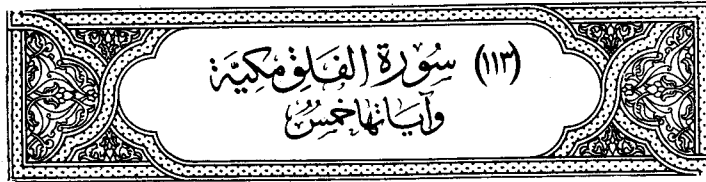 (١١٣) سُورَة الفَلَقِ مَكِيَّة
وَآيَاتُهَا خَمْسٌ